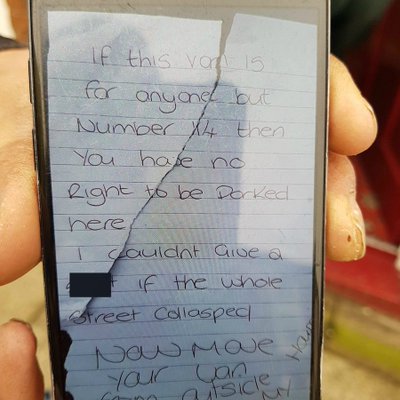 If this van is
for anyone but
Number 14 then
You have no
Right to be Parked
here
I couldnt Give a
if the whole
Street Collosped
Now Move
Your Van
From outside
MY